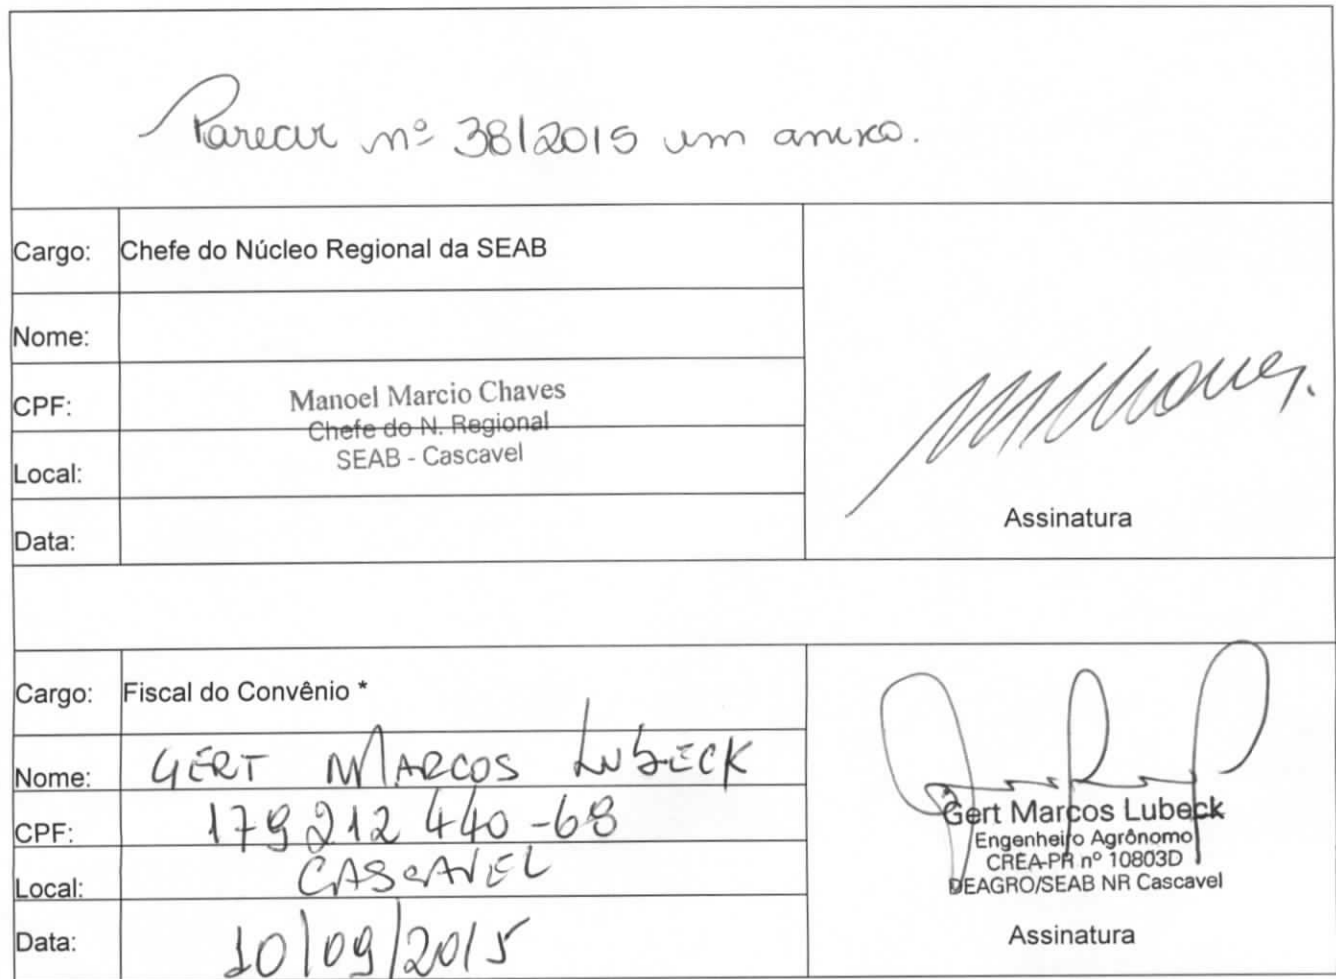 Parecer nº 38/2015 em anexo.
Cargo: Chefe do Núcleo Regional da SEAB
Nome:
CPF:
Manoel Marcio Chaves
Chefe do N. Regional
SEAB - Cascavel
Local:
Data:
Assinatura
Cargo: Fiscal do Convênio *
Nome: GERT MARCOS LUBECK
CPF: 179 212 440-68
Local: CASCAVEL
Data: 10/09/2015
Gert Marcos Lubeck
Engenheiro Agrônomo
CREA-PR nº 10803D
DEAGRO/SEAB NR Cascavel
Assinatura